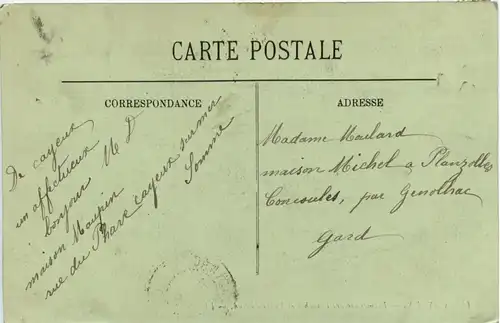 CARTE POSTALE
CORRESPONDANCE
De Cayeux
un affectueux
bonjour M D
maison Maupin
rue du Phare Cayeux sur mer
Somme
ADRESSE
Madame Maulard
maison Michel a Planzolles
Concoules, par Genolhac
Gard